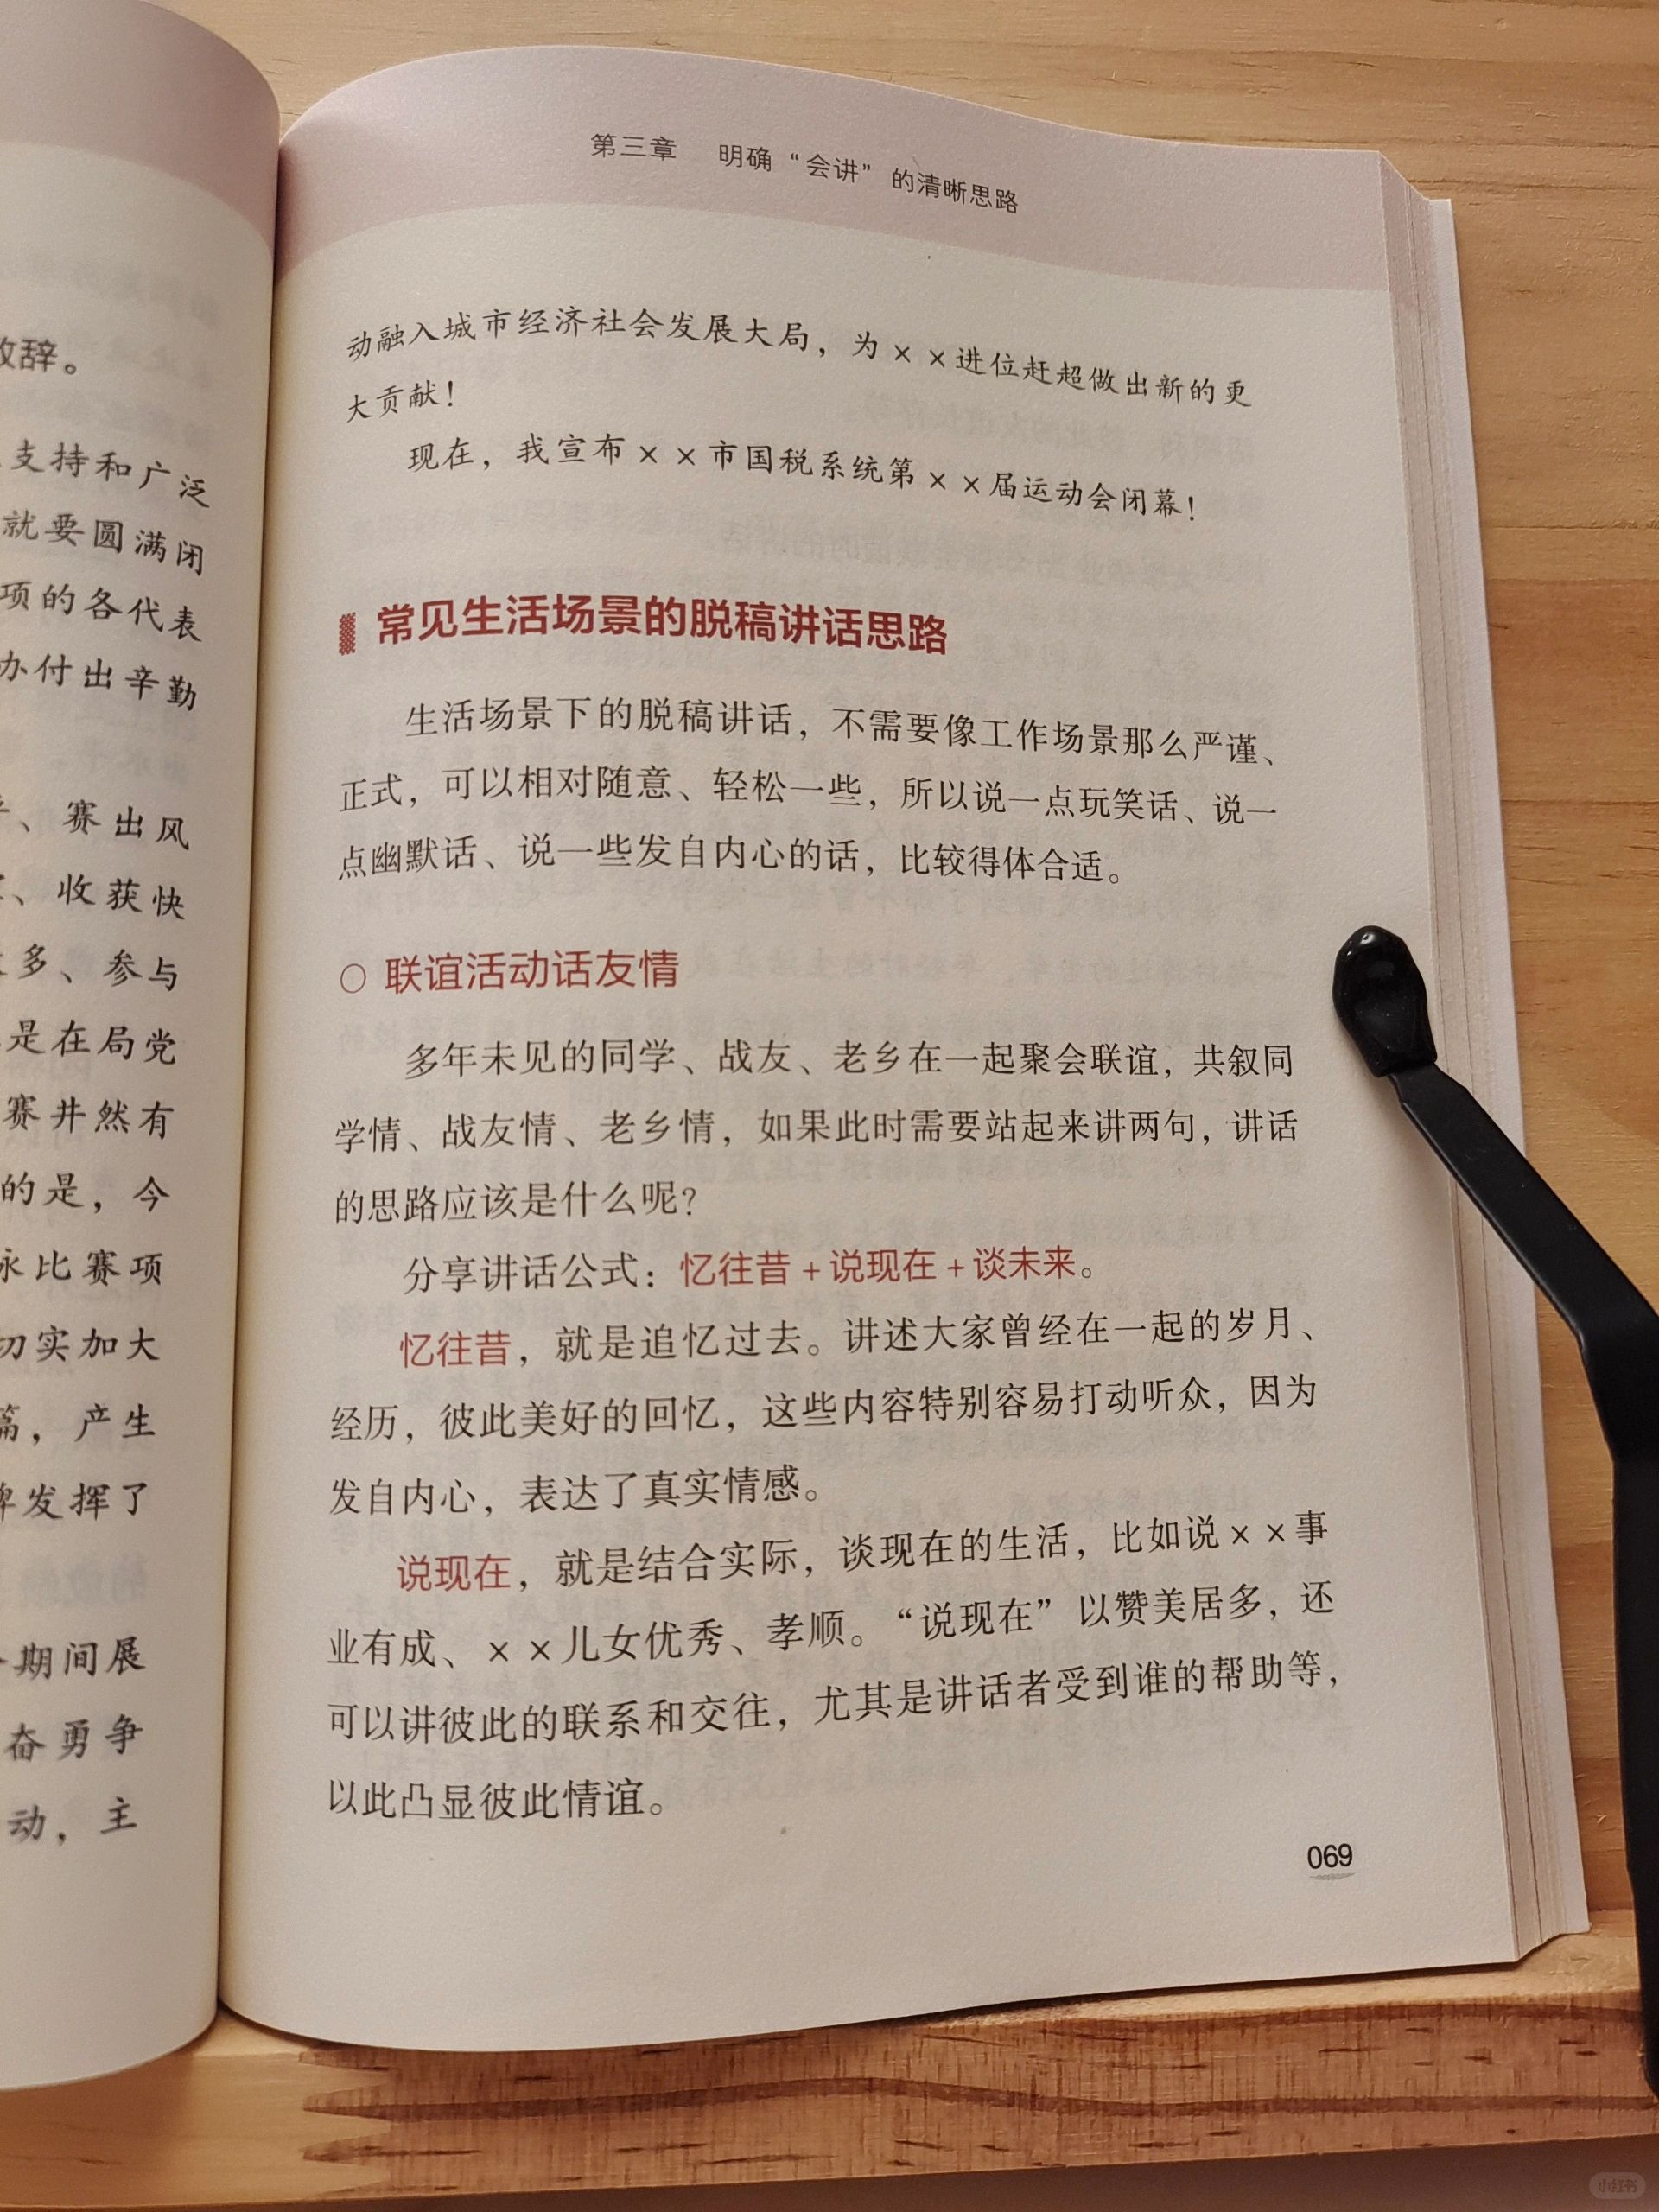 辞。
支持和广泛
就要圆满闭
项的各代表
办付出辛勤
、赛出风
、收获快
多、参与
是在局党
赛井然有
的是，今
泳比赛项
切实加大
篇，产生
牌发挥了
期间展
奋勇争
动，主
第三章 明确“会讲”的清晰思路
动融入城市经济社会发展大局，为××进位赶超做出新的更
大贡献！
现在，我宣布××市国税系统第××届运动会闭幕！
常见生活场景的脱稿讲话思路
生活场景下的脱稿讲话，不需要像工作场景那么严谨、
正式，可以相对随意、轻松一些，所以说一点玩笑话、说一
点幽默话、说一些发自内心的话，比较得体合适。
○ 联谊活动话友情
多年未见的同学、战友、老乡在一起聚会联谊，共叙同
学情、战友情、老乡情，如果此时需要站起来讲两句，讲话
的思路应该是什么呢？
分享讲话公式：忆往昔+说现在+谈未来。
忆往昔，就是追忆过去。讲述大家曾经在一起的岁月、
经历，彼此美好的回忆，这些内容特别容易打动听众，因为
发自内心，表达了真实情感。
说现在，就是结合实际，谈现在的生活，比如说××事
业有成、××儿女优秀、孝顺。“说现在”以赞美居多，还
可以讲彼此的联系和交往，尤其是讲话者受到谁的帮助等，
以此凸显彼此情谊。
069
小红书